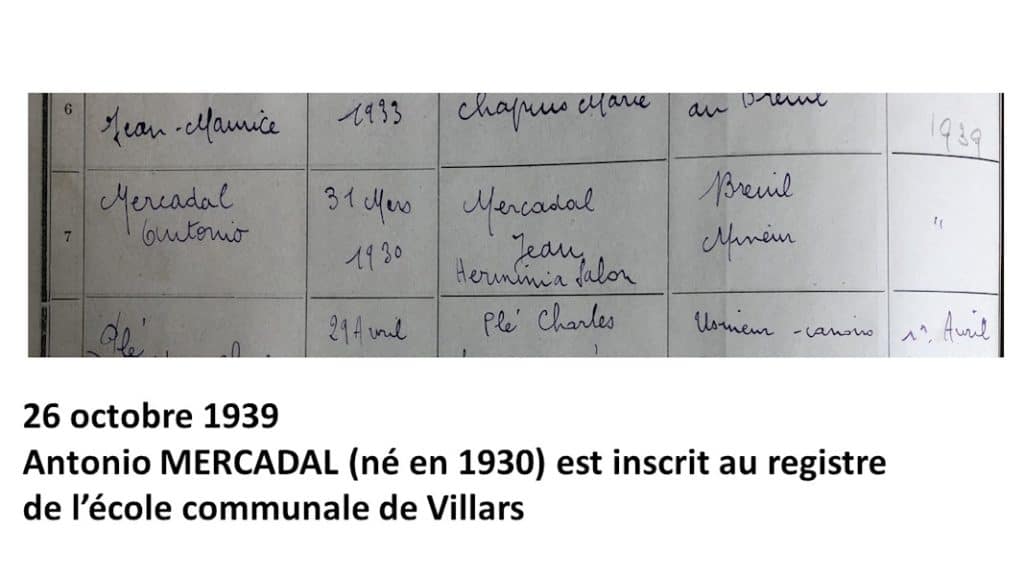 6
Jean-Maurice
1933
Chapuis Marie
au Breuil
1939
7
Mercadal
Antonio
31 Mars
1930
Mercadal
Jean
Herminia Salon
Breuil
Mineur
"
Plé
29 Avril
Plé Charles
1er Avril
26 octobre 1939
Antonio MERCADAL (né en 1930) est inscrit au registre
de l’école communale de Villars